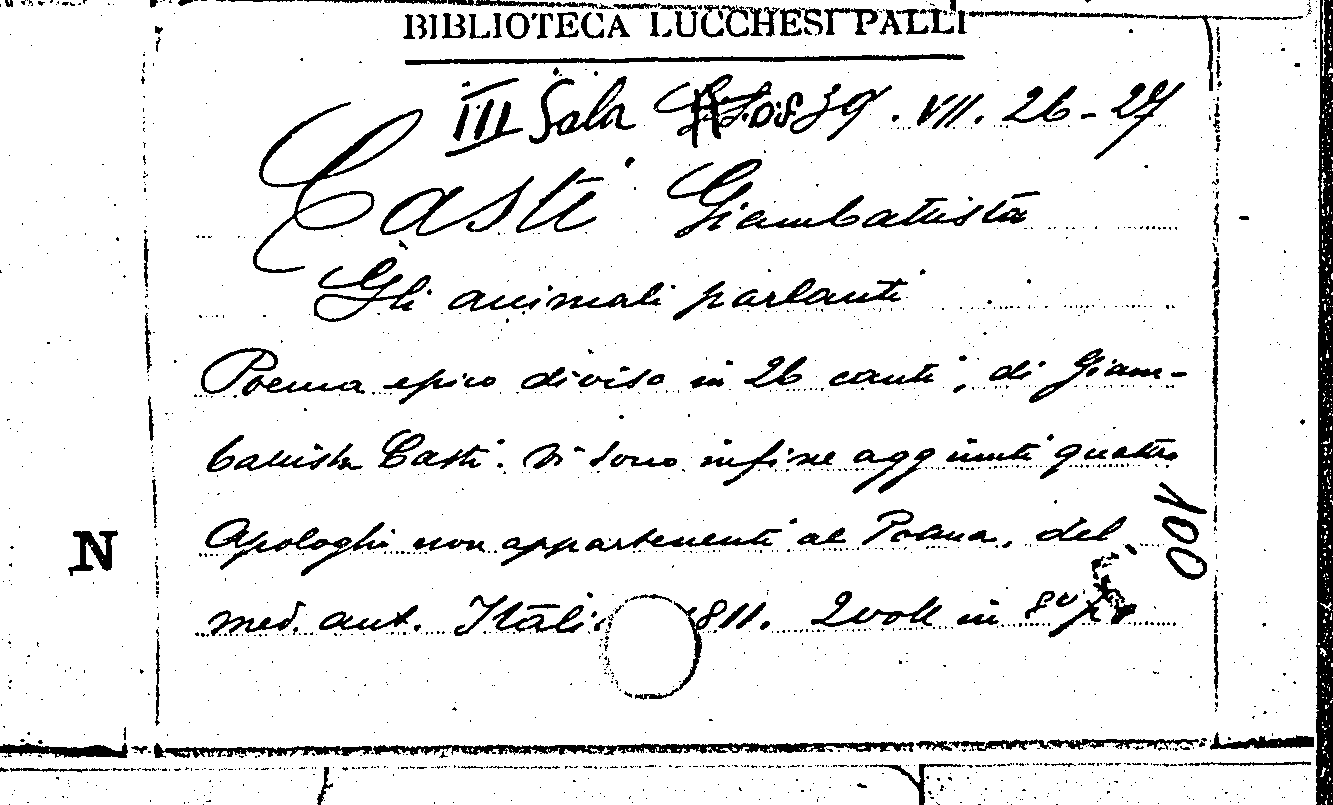 BIBLIOTECA LUCCHESI PALLI
III Sala . VII. 26-27
Casti Giambattista
Gli animali parlanti
Poema epico diviso in 26 canti, di Giam-
battista Casti. Vi sono infine aggiunti quattro
Apologhi non appartenenti al Poema, del
med. aut. Itali 1811. 2 voll in 8º
100
N